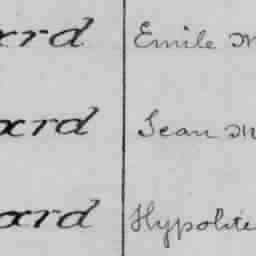 ard Emile M
ard Jean M
ard Hypolite